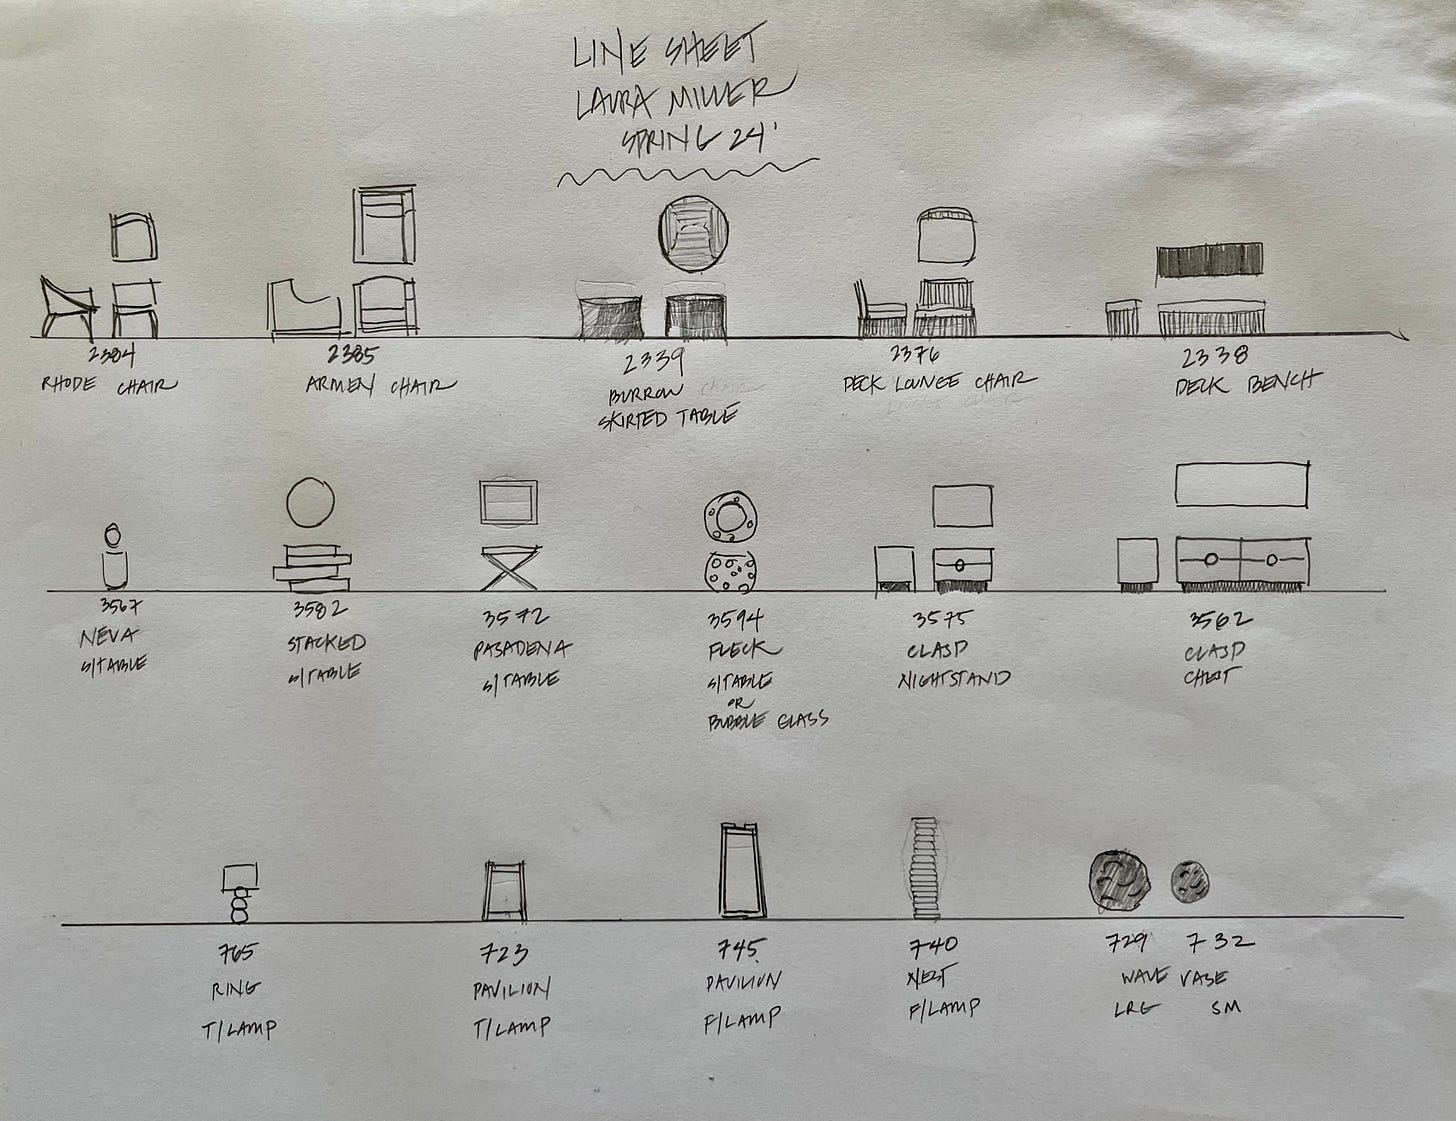 LINE SHEET
LAURA MILLER
SPRING 24'
2384
RHODE CHAIR
2385
ARMEN CHAIR
2339
BURROW CHAIR
SKIRTED TABLE
2376
DECK LOUNGE CHAIR
2338
DECK BENCH
3567
NEVA
S/TABLE
3582
STACKED
S/TABLE
3572
PASADENA
S/TABLE
3594
FLECK
S/TABLE
OR
BUBBLE GLASS
3575
CLASP
NIGHTSTAND
3562
CLASP
CHEST
765
RING
T/LAMP
723
PAVILION
T/LAMP
745
PAVILION
F/LAMP
740
NEST
F/LAMP
729 732
WAVE VASE
LRG SM